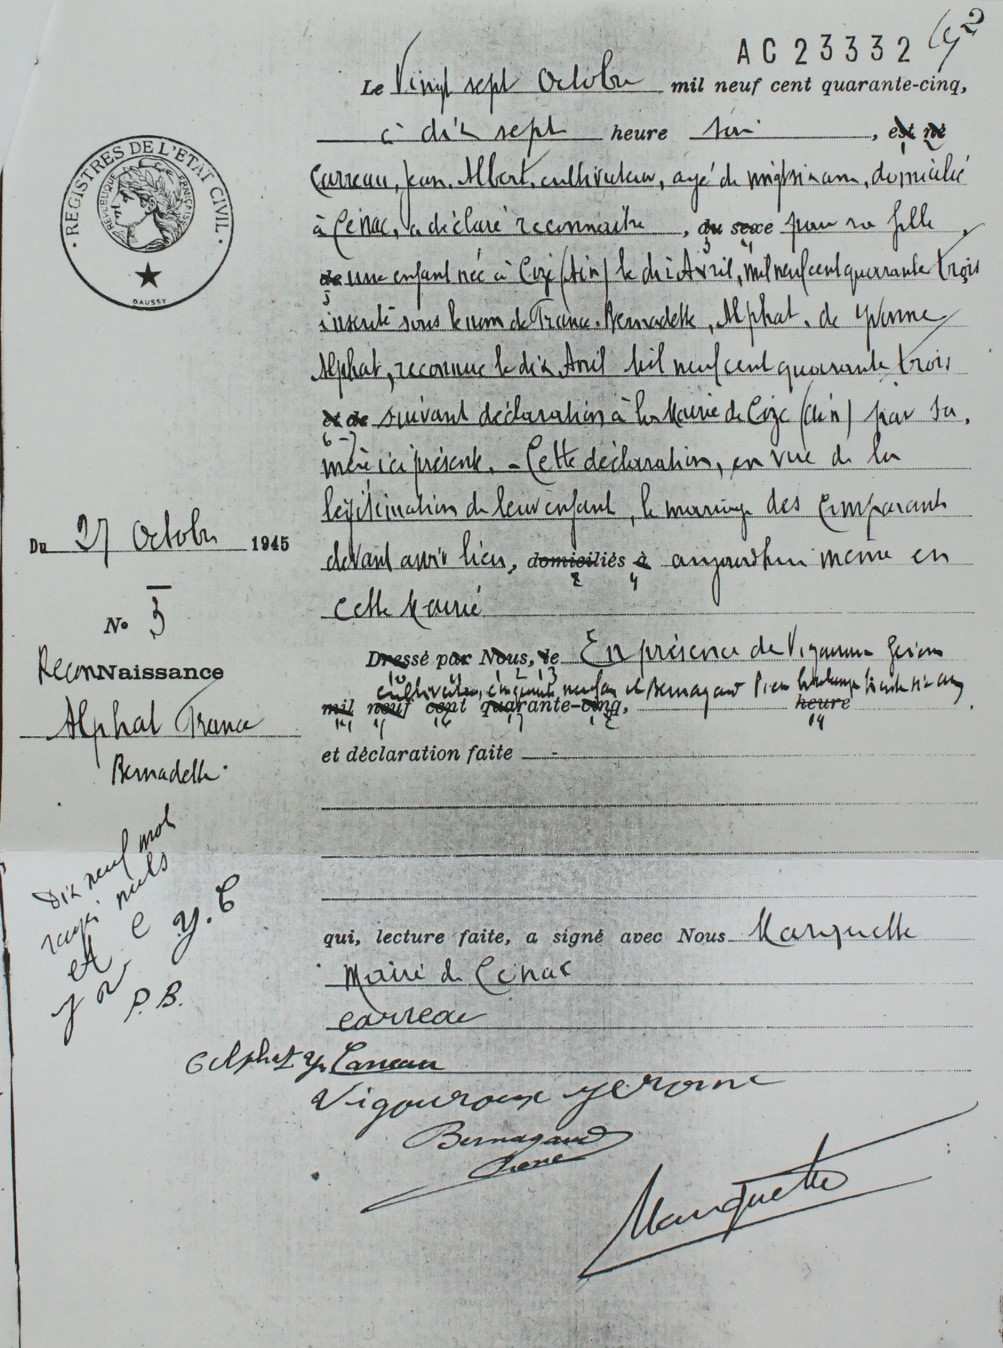 AC 23332
Le Vingt sept Octobre mil neuf cent quarante-cinq,
à dix sept heure soir, est né
Carreau, Jean, Albert, cultivateur, agé de vingt six ans, domicilié
à Cénac, a déclaré reconnaître, du sexe pour sa fille
de une enfant née à Cize (Ain) le dix Avril, mil neuf cent quarante trois
3 4
5
inscrite sous le nom de France, Bernadette, Alphat, de Yvonne
Alphat, reconnue le dix Avril mil neuf cent quarante trois
et de suivant déclaration à la Mairie de Cize (Ain) par sa
6 - 7
mère ici présente. - Cette déclaration, en vue de la
légitimation de leur enfant, le mariage des comparants
devant avoir lieu, domiciliés à aujourd'hui même en
cette Mairie
Dressé par Nous, le En présence de Vigouroux
cultivateur, cinquante neuf ans et Bernagaud
mil neuf cent quarante-cinq, heure
et déclaration faite
qui, lecture faite, a signé avec Nous Marquette
Maire de Cénac
Carreau
Alphat Y. Carreau
Vigouroux
Bernagaud
Marquette
REGISTRES DE L'ETAT CIVIL
REPUBLIQUE FRANÇAISE
DAUSSY
Du 27 Octobre 1945
N° 3
Recon Naissance
Alphat France
Bernadette.
Dix neuf mots
rayés nuls
C Y.C
P.B.